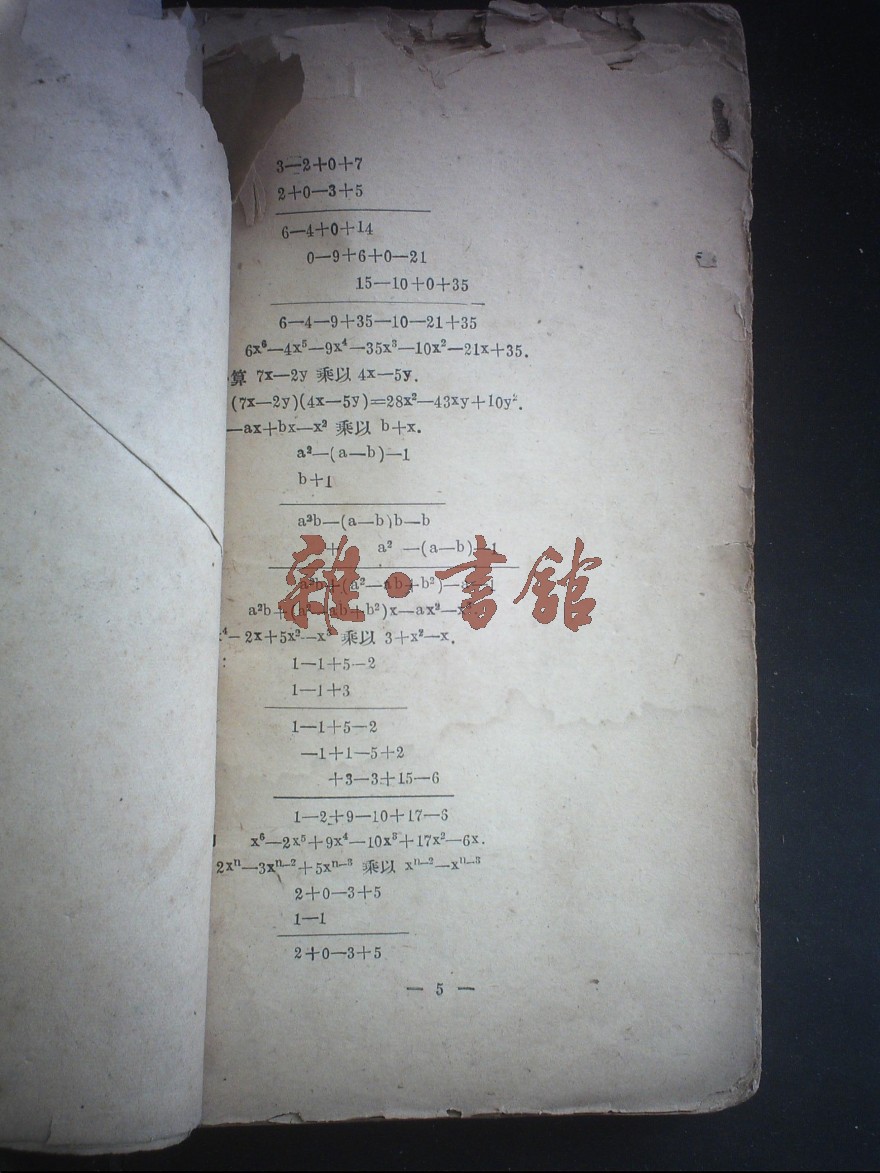 3—2+0+7
2+0—3+5
6—4+0+14
0—9+6+0—21
15—10+0+35
6—4—9+35—10—21+35
6x⁶—4x⁵—9x⁴—35x³—10x²—21x+35.
算 7x—2y 乘以 4x—5y.
(7x—2y)(4x—5y)=28x²—43xy+10y².
—ax+bx—x² 乘以 b+x.
a²—(a—b)—1
b+1
a²b—(a—b)b—b
+ a² —(a—b)—1
a²b+(a²—ab+b²)—a—1
雜·書館
a²b+(a²—ab+b²)x—ax²—x³
⁴—2x+5x²—x³ 乘以 3+x²—x.
:
1—1+5—2
1—1+3
1—1+5—2
—1+1—5+2
+3—3+15—6
1—2+9—10+17—6
x⁶—2x⁵+9x⁴—10x³+17x²—6x.
2xⁿ—3xⁿ⁻²+5xⁿ⁻³ 乘以 xⁿ⁻²—xⁿ⁻³
2+0—3+5
1—1
2+0—3+5
— 5 —